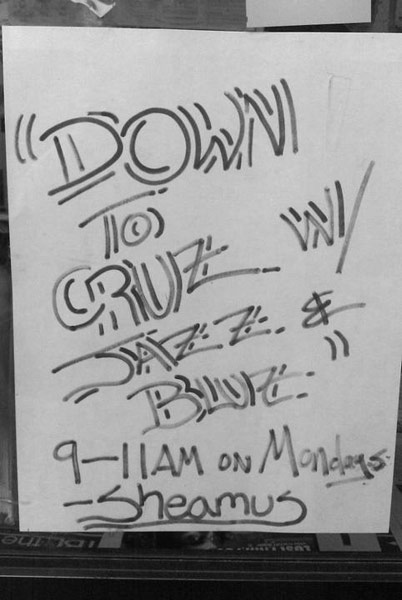 "DOWN
TO
CRUZ W/
JAZZ &
BLUZ"
9-11AM ON Mondays.
-Sheamus